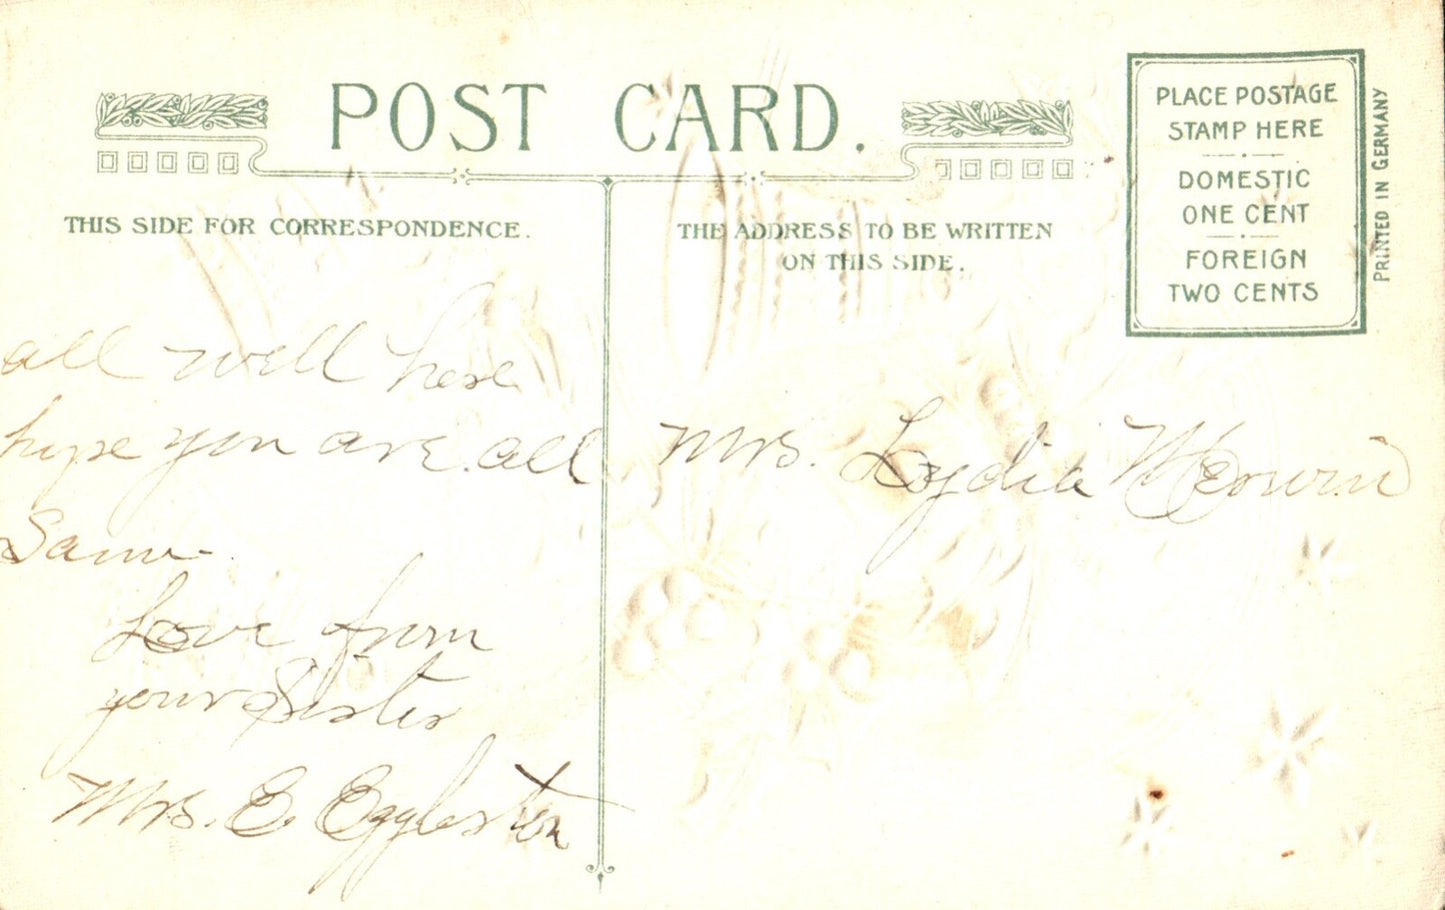 POST CARD.
THIS SIDE FOR CORRESPONDENCE.
THE ADDRESS TO BE WRITTEN
ON THIS SIDE.
PLACE POSTAGE
STAMP HERE
DOMESTIC
ONE CENT
FOREIGN
TWO CENTS
PRINTED IN GERMANY
all well here
hope you are all
Same.
Love from
your Sister
Mrs. E. Eggleston
Mrs. Lydia Merwin